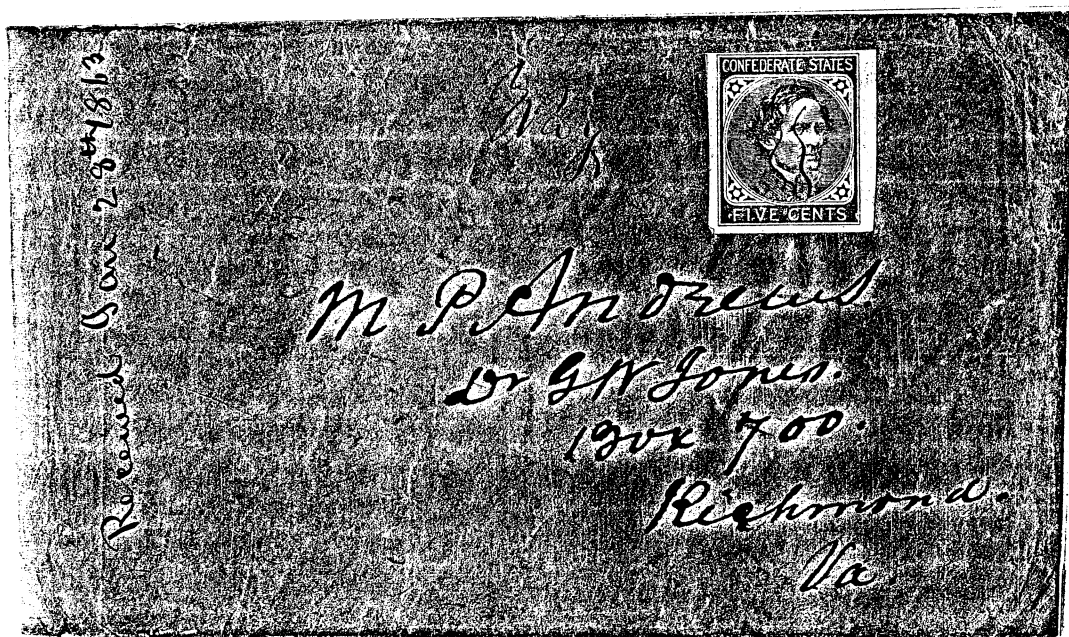 Received Jan 28th 1863
Way
CONFEDERATE STATES
5
FIVE CENTS
M P Andrews
Dr G W Jones.
Box 700.
Richmond.
Va